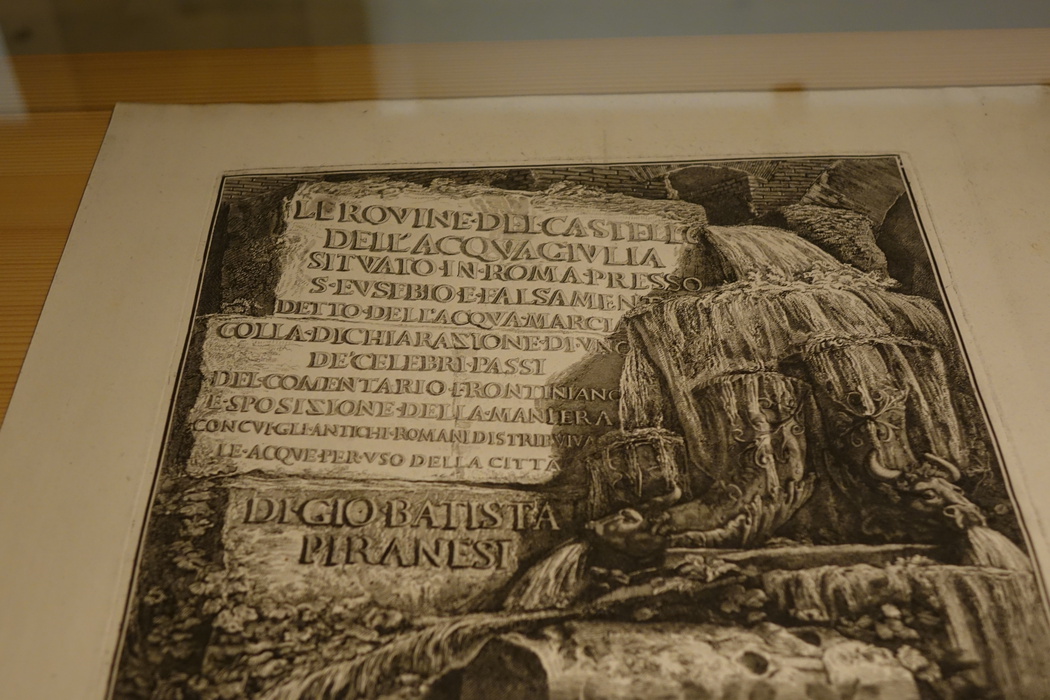 LE·ROVINE·DEL·CASTELLO
DELL'ACQVA·GIVLIA
SITVATO·IN·ROMA·PRESSO
S·EVSEBIO·E·FALSAMENTE
DETTO·DELL'ACQVA·MARCIA
COLLA·DICHIARAZIONE·DI·VNO
DE'CELEBRI·PASSI
DEL·COMENTARIO·FRONTINIANO
E·SPOSIZIONE·DELLA·MANIERA
CON CVI·GLI·ANTICHI·ROMANI DISTRIBVIVA
LE·ACQVE·PER·VSO DELLA CITTA
DI·GIO·BATISTA
PIRANESI